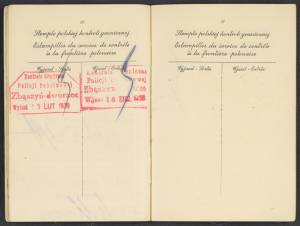 Stemple polskiej kontroli granicznej
Estampilles du service de contrôle
à la frontière polonaise
Wyjazd - Sortie
Wjazd - Entrée
Kontrola Graniczna
Policji Państwowej
Zbąszyń-dworzec
Wyjazd 1 LUT 1939
Kontrola Graniczna
Zbąszyń
Stemple polskiej kontroli granicznej
Estampilles du service de contrôle
à la frontière polonaise
Wyjazd - Sortie
Wjazd - Entrée